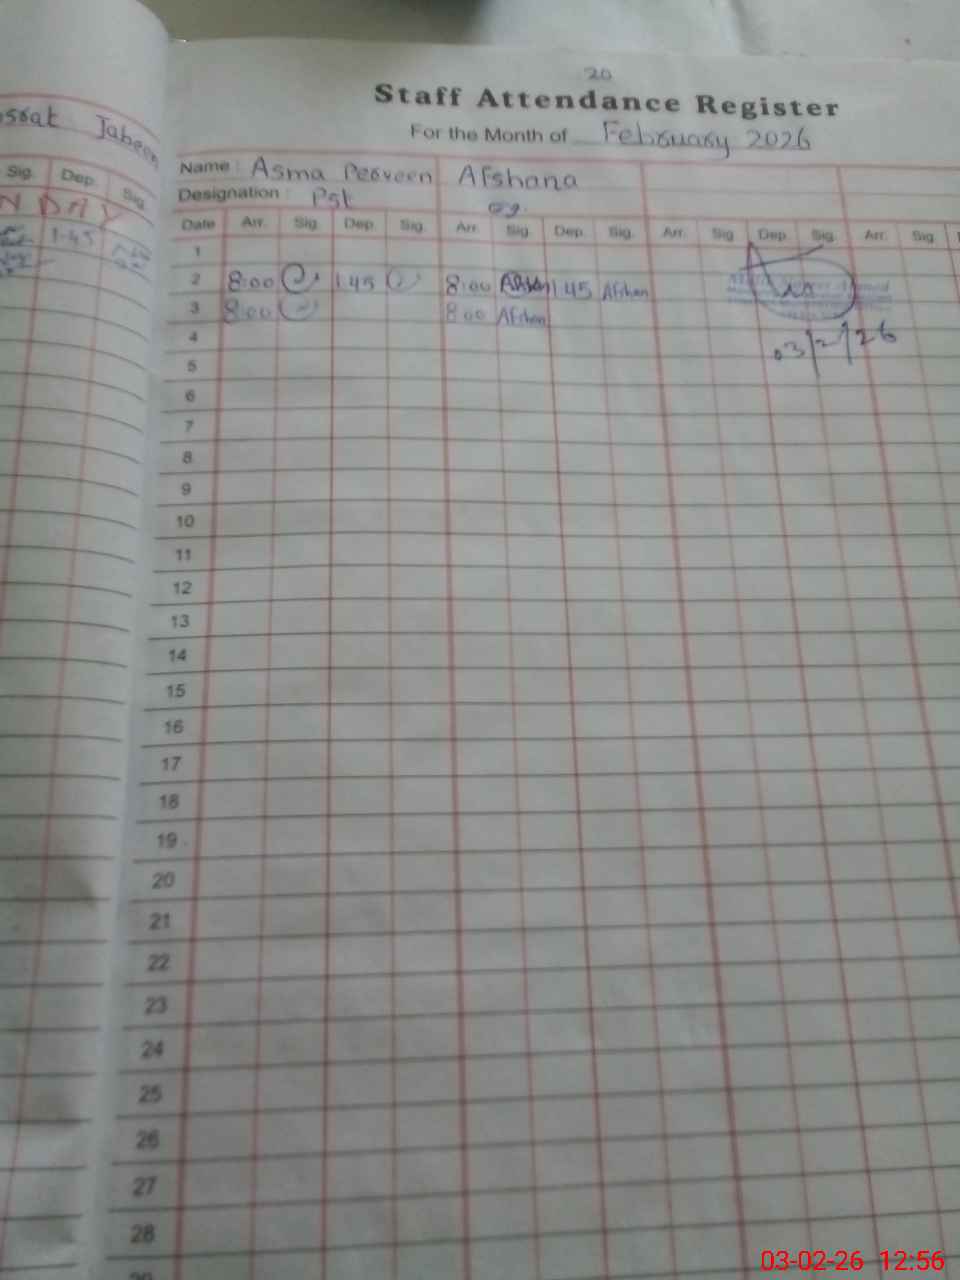 20
Staff Attendance Register
For the Month of February 2026
Jabeen
Sig. Dep. Sig.
N DAY
1-45
Name : Asma Perveen Afshana
Designation : Pst
Date Arr. Sig. Dep. Sig. Arr. Sig. Dep. Sig. Arr. Sig Dep. Sig. Arr. Sig.
1
2 8:00 1.45 8:00 Afshan 1.45 Afshan
3 8:00 8:00 Afshan
03/2/26
4
5
6
7
8
9
10
11
12
13
14
15
16
17
18
19
20
21
22
23
24
25
26
27
28
29
03-02-26 12:56